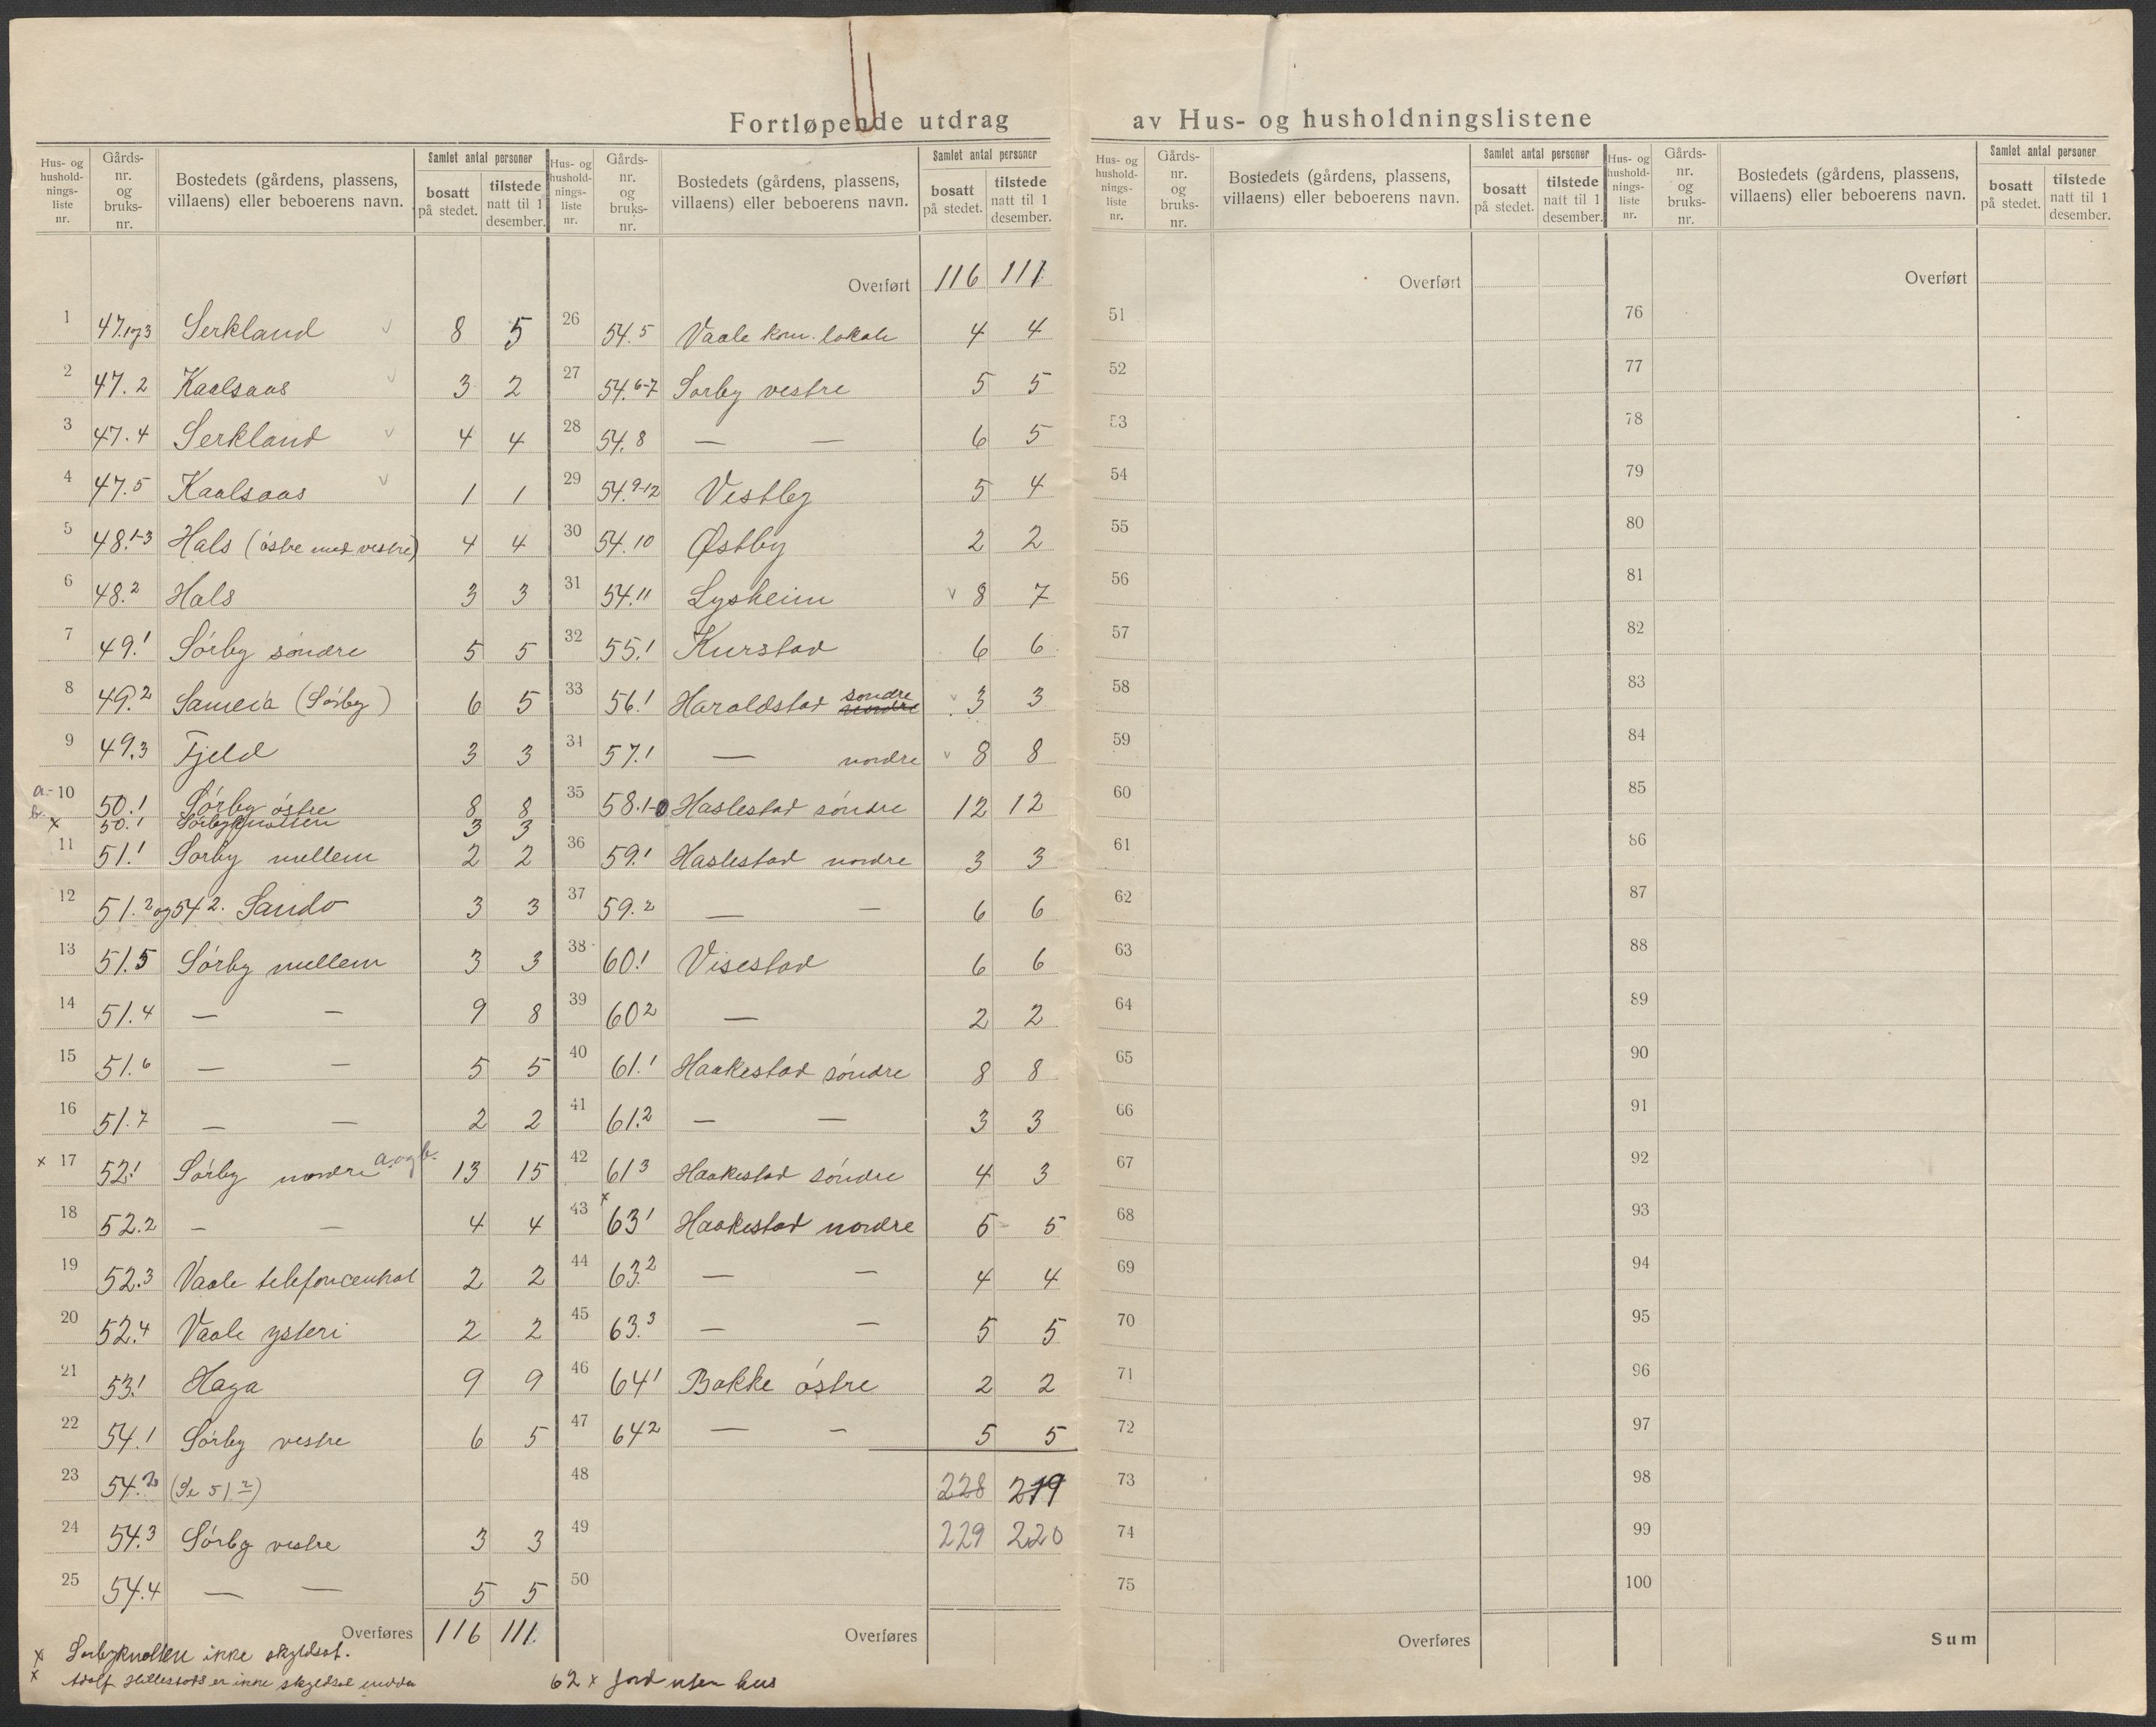 Fortløpende utdrag av Hus- og husholdningslistene
Hus- og husholdnings-liste nr. Gårds-nr. og bruks-nr. Bostedets (gårdens, plassens, villaens) eller beboerens navn. Samlet antal personer bosatt på stedet. tilstede natt til 1 desember.
1 47.1og3 Serkland 8 5
2 47.2 Kaalsaas 3 2
3 47.4 Serkland 4 4
4 47.5 Kaalsaas 1 1
5 48.1-3 Hals (østre med vestre) 4 4
6 48.2 Hals 3 3
7 49.1 Sørby søndre 5 5
8 49.2 (Sørby) 6 5
9 49.3 Fjeld 3 3
a. 10 50.1 Sørby østre 8 8
b. x 50.1 Sørbyknatten 3 3
11 51.1 Sørby mellem 2 2
12 51.2 og 54.2. Sando 3 3
13 51.5 Sørby mellem 3 3
14 51.4 — — 9 8
15 51.6 — — 5 5
16 51.7 — — 2 2
x 17 52.1 Sørby nordre a. og b. 13 15
18 52.2 — — 4 4
19 52.3 Vaale telefoncentral 2 2
20 52.4 Vaale ysteri 2 2
21 53.1 Haga 9 9
22 54.1 Sørby vestre 6 5
23 54.2 (Se 51.2)
24 54.3 Sørby vestre 3 3
25 54.4 — — 5 5
Overføres 116 111
x Sørbyknatten ikke skyldsat.
x Adolf Hillestads er ikke skyldsat endda
Hus- og husholdnings-liste nr. Gårds-nr. og bruks-nr. Bostedets (gårdens, plassens, villaens) eller beboerens navn. Samlet antal personer bosatt på stedet. tilstede natt til 1 desember.
Overført 116 111
26 54.5 Vaale kom. lokale 4 4
27 54.6-7 Sørby vestre 5 5
28 54.8 — — 6 5
29 54.9-12 Vestby 5 4
30 54.10 Østby 2 2
31 54.11 Lysheim 8 7
32 55.1 Kurstad 6 6
33 56.1 Haraldstad søndre 3 3
34 57.1 — nordre 8 8
35 58.1- Haslestad søndre 12 12
36 59.1 Haslestad nordre 3 3
37 59.2 — — 6 6
38 60.1 Visestad 6 6
39 60 2 — 2 2
40 61.1 Haakestad søndre 8 8
41 61.2 — — 3 3
42 61 3 Haakestad søndre 4 3
43 x 63 1 Haakestad nordre 5 5
44 63.2 — — 4 4
45 63.3 — — 5 5
46 64 1 Bakke østre 2 2
47 64 2 — — 5 5
48 228 219
49 229 220
50
Overføres
62 x Jord uten hus
Hus- og husholdnings-liste nr. Gårds-nr. og bruks-nr. Bostedets (gårdens, plassens, villaens) eller beboerens navn. Samlet antal personer bosatt på stedet. tilstede natt til 1 desember.
Overført
51
52
53
54
55
56
57
58
59
60
61
62
63
64
65
66
67
68
69
70
71
72
73
74
75
Overføres
Hus- og husholdnings-liste nr. Gårds-nr. og bruks-nr. Bostedets (gårdens, plassens, villaens) eller beboerens navn. Samlet antal personer bosatt på stedet. tilstede natt til 1 desember.
Overført
76
77
78
79
80
81
82
83
84
85
86
87
88
89
90
91
92
93
94
95
96
97
98
99
100
Sum